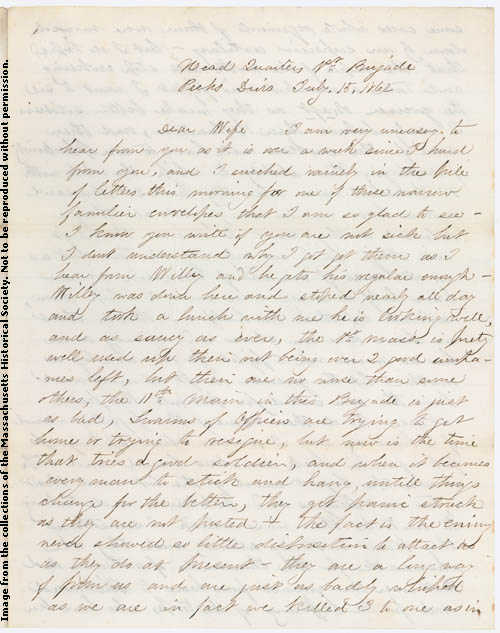 Image from the collections of the Massachusetts Historical Society. Not to be reproduced without permission.
Head Quarters 1st Brigade
Pecks Divis July. 15, 1862
Dear Wife I am very uneasy to
hear from you as it is over a week since I heard
from you, and I surched vainely in the pile
of letters this morning for one of those narrow
familier envelipes that I am so glad to see -
I know you write if you are not sick but
I dont understand why I get them as I
hear from Willey and he gets his regular enough -
Willey was down here and stoped nearly all day
and took a lunch with me he is looking well,
and as saucy as ever, the 1st mass. is prety
well used up there not being over 2 good
left, but their are no worse than some
others, the 11th Maine in this Brigade is just
as bad, Swarms of Officers are trying to get
home or trying to resigne, but now is the time
that tries a good soldier, and when it becomes
every man to stick and hang, untill things
change for the better, they get panic struck
as they are not posted - the fact is the enimy
never showed so little disposition to attack us
as they do at present - they are a long way
from us and are just as badly whiped
as we are in fact we killed 3 to one as in